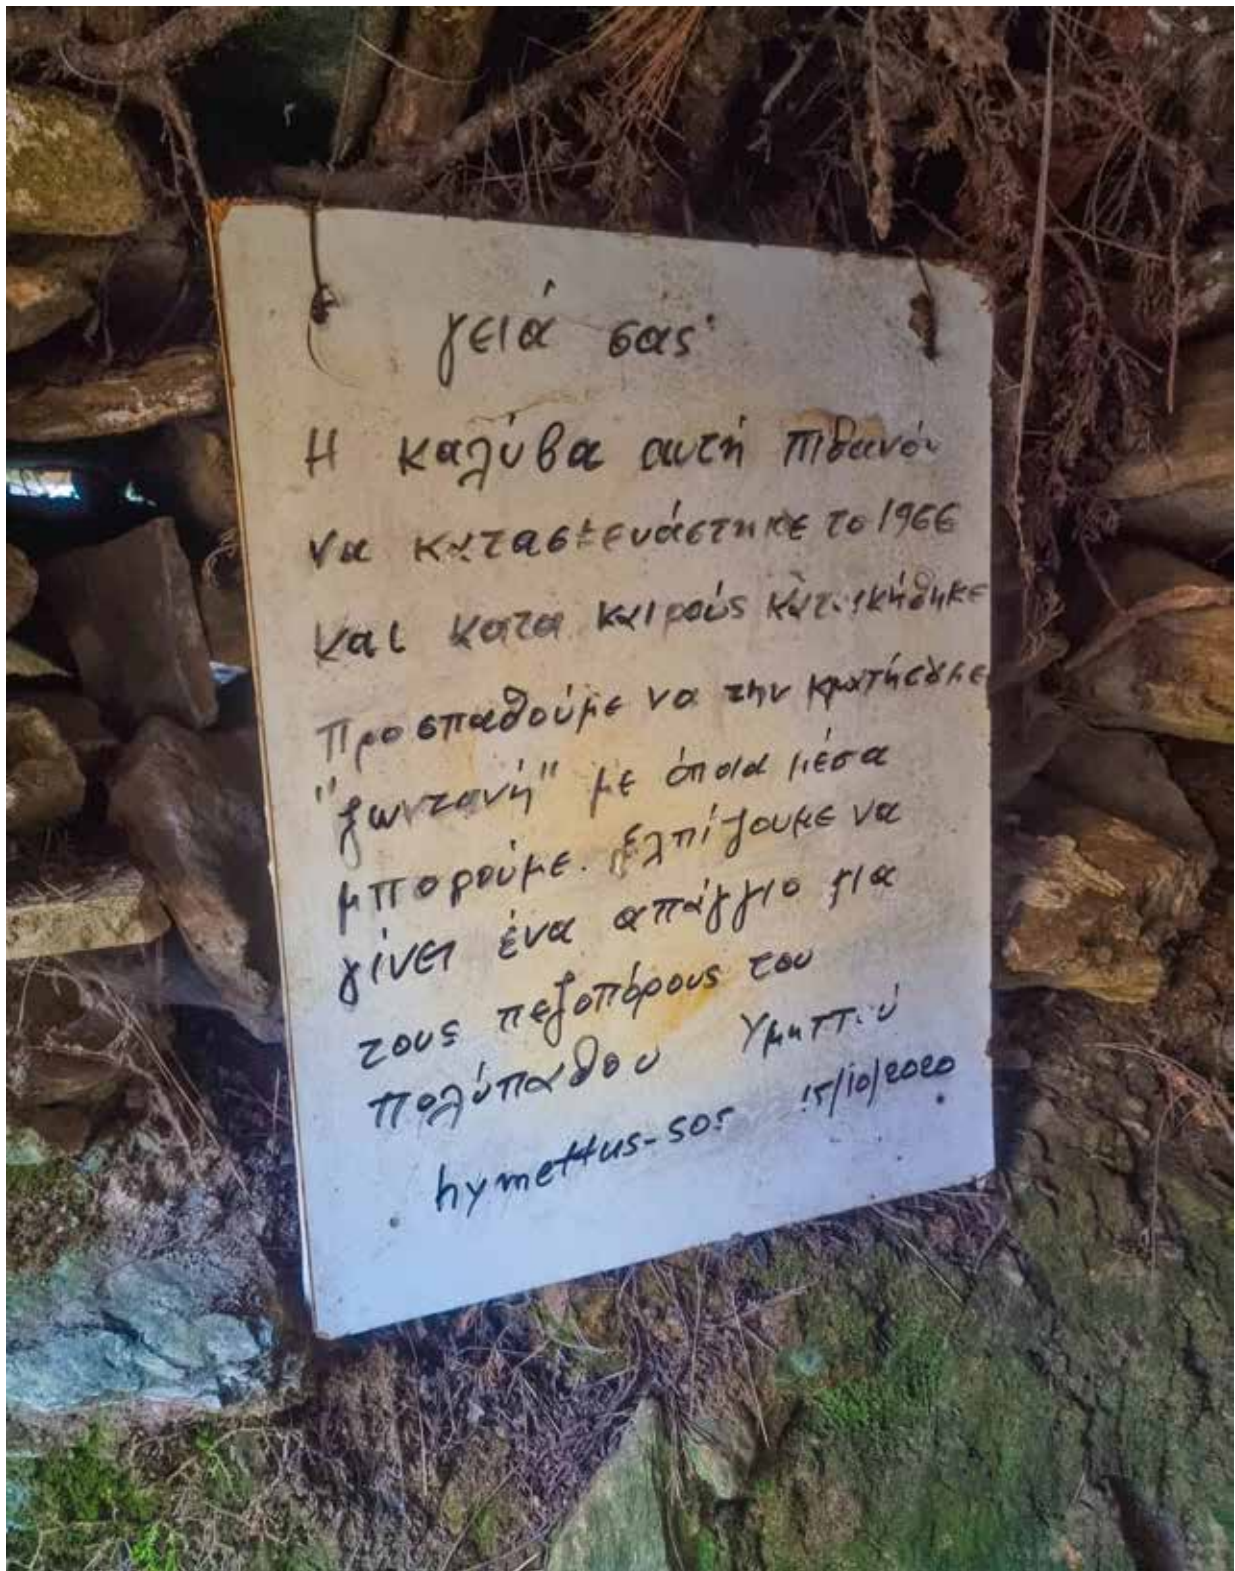 γειά σας
Η καλύβα αυτή πιθανόν
να κατασκευάστηκε το 1966
και κατα καιρούς κατοικήθηκε
Προσπαθούμε να την κρατήσουμε
"ζωντανή" με όποια μέσα
μπορούμε. Ελπίζουμε να
γίνει ένα απάγγιο για
τους πεζοπόρους του
πολύπαθου Υμηττού
hymettus-sos 15/10/2020